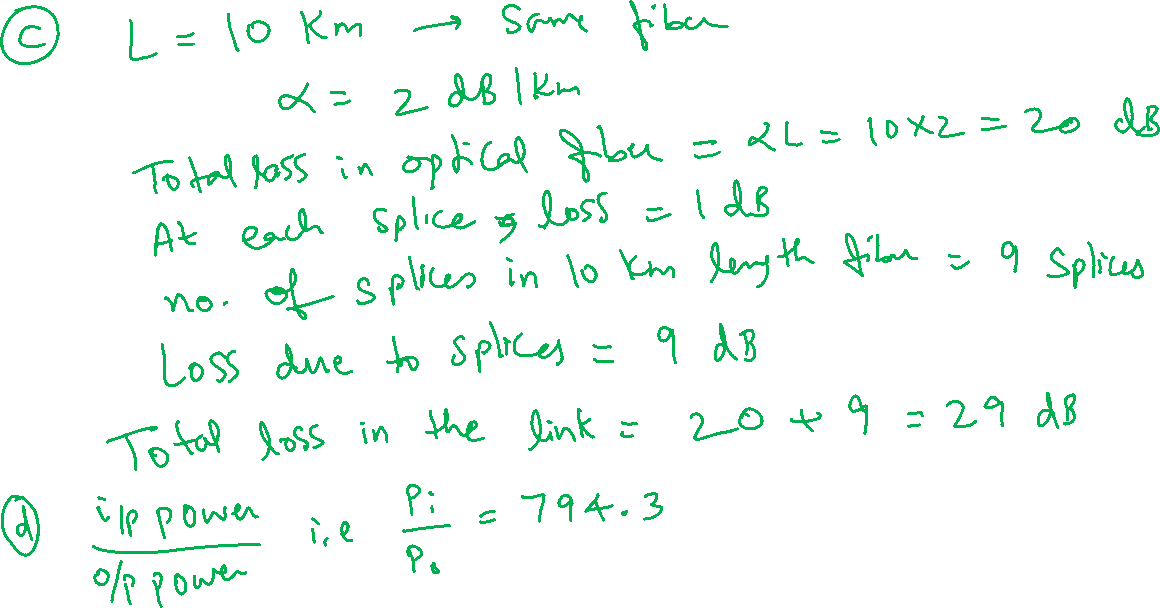 ⓒ L = 10 Km → Same fiber
α = 2 dB/Km
Total loss in optical fiber = αL = 10×2 = 20 dB
At each splice, loss = 1 dB
no. of splices in 10 Km length fiber = 9 Splices
Loss due to splices = 9 dB
Total loss in the link = 20 + 9 = 29 dB
ⓓ i/p power / o/p power i.e Pi / Po = 794.3